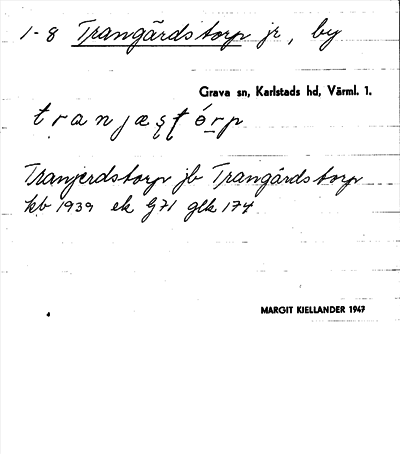 1-8 Trangärdstorp jr, by
Grava sn, Karlstads hd, Värml. 1.
Tranjerdstorp jb Trangärdstorp
kb 1939 ek G71 glk 174
MARGIT KIELLANDER 1947